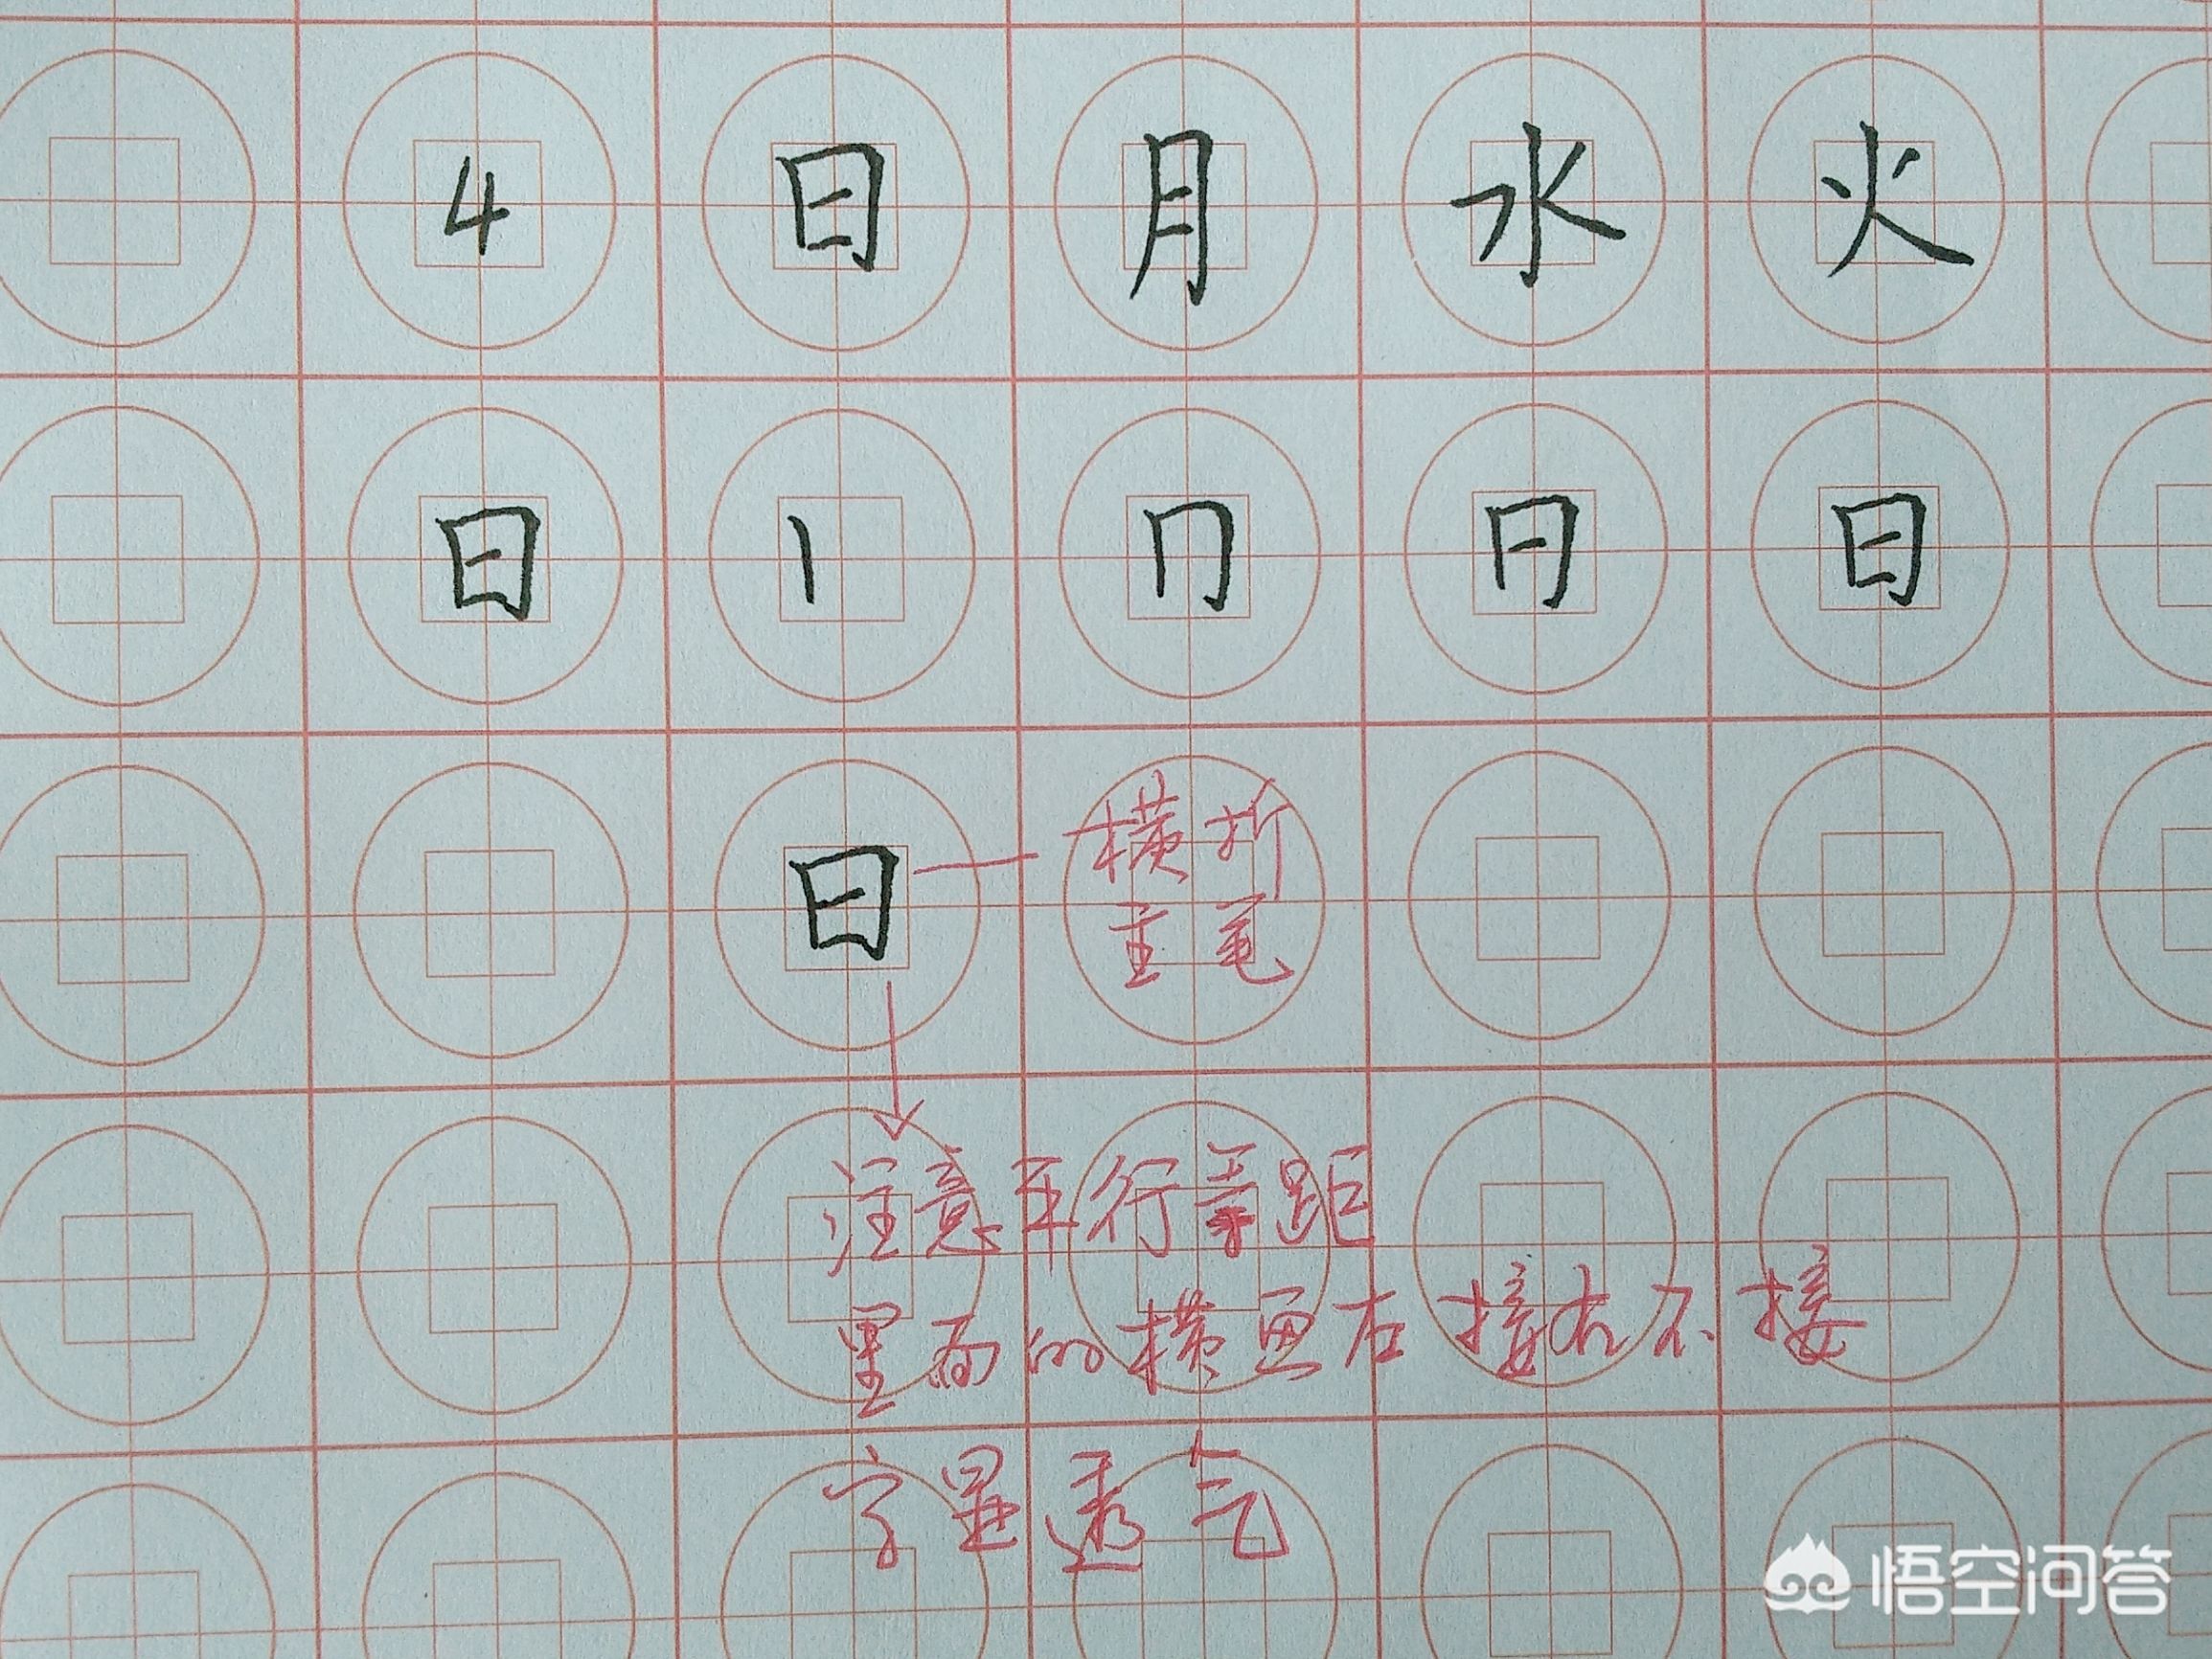 4 日 月 水 火
日 丨 𠃍 日
日 横折
主笔
注意平行等距
里面的横画左接右不接
字显透气
悟空问答